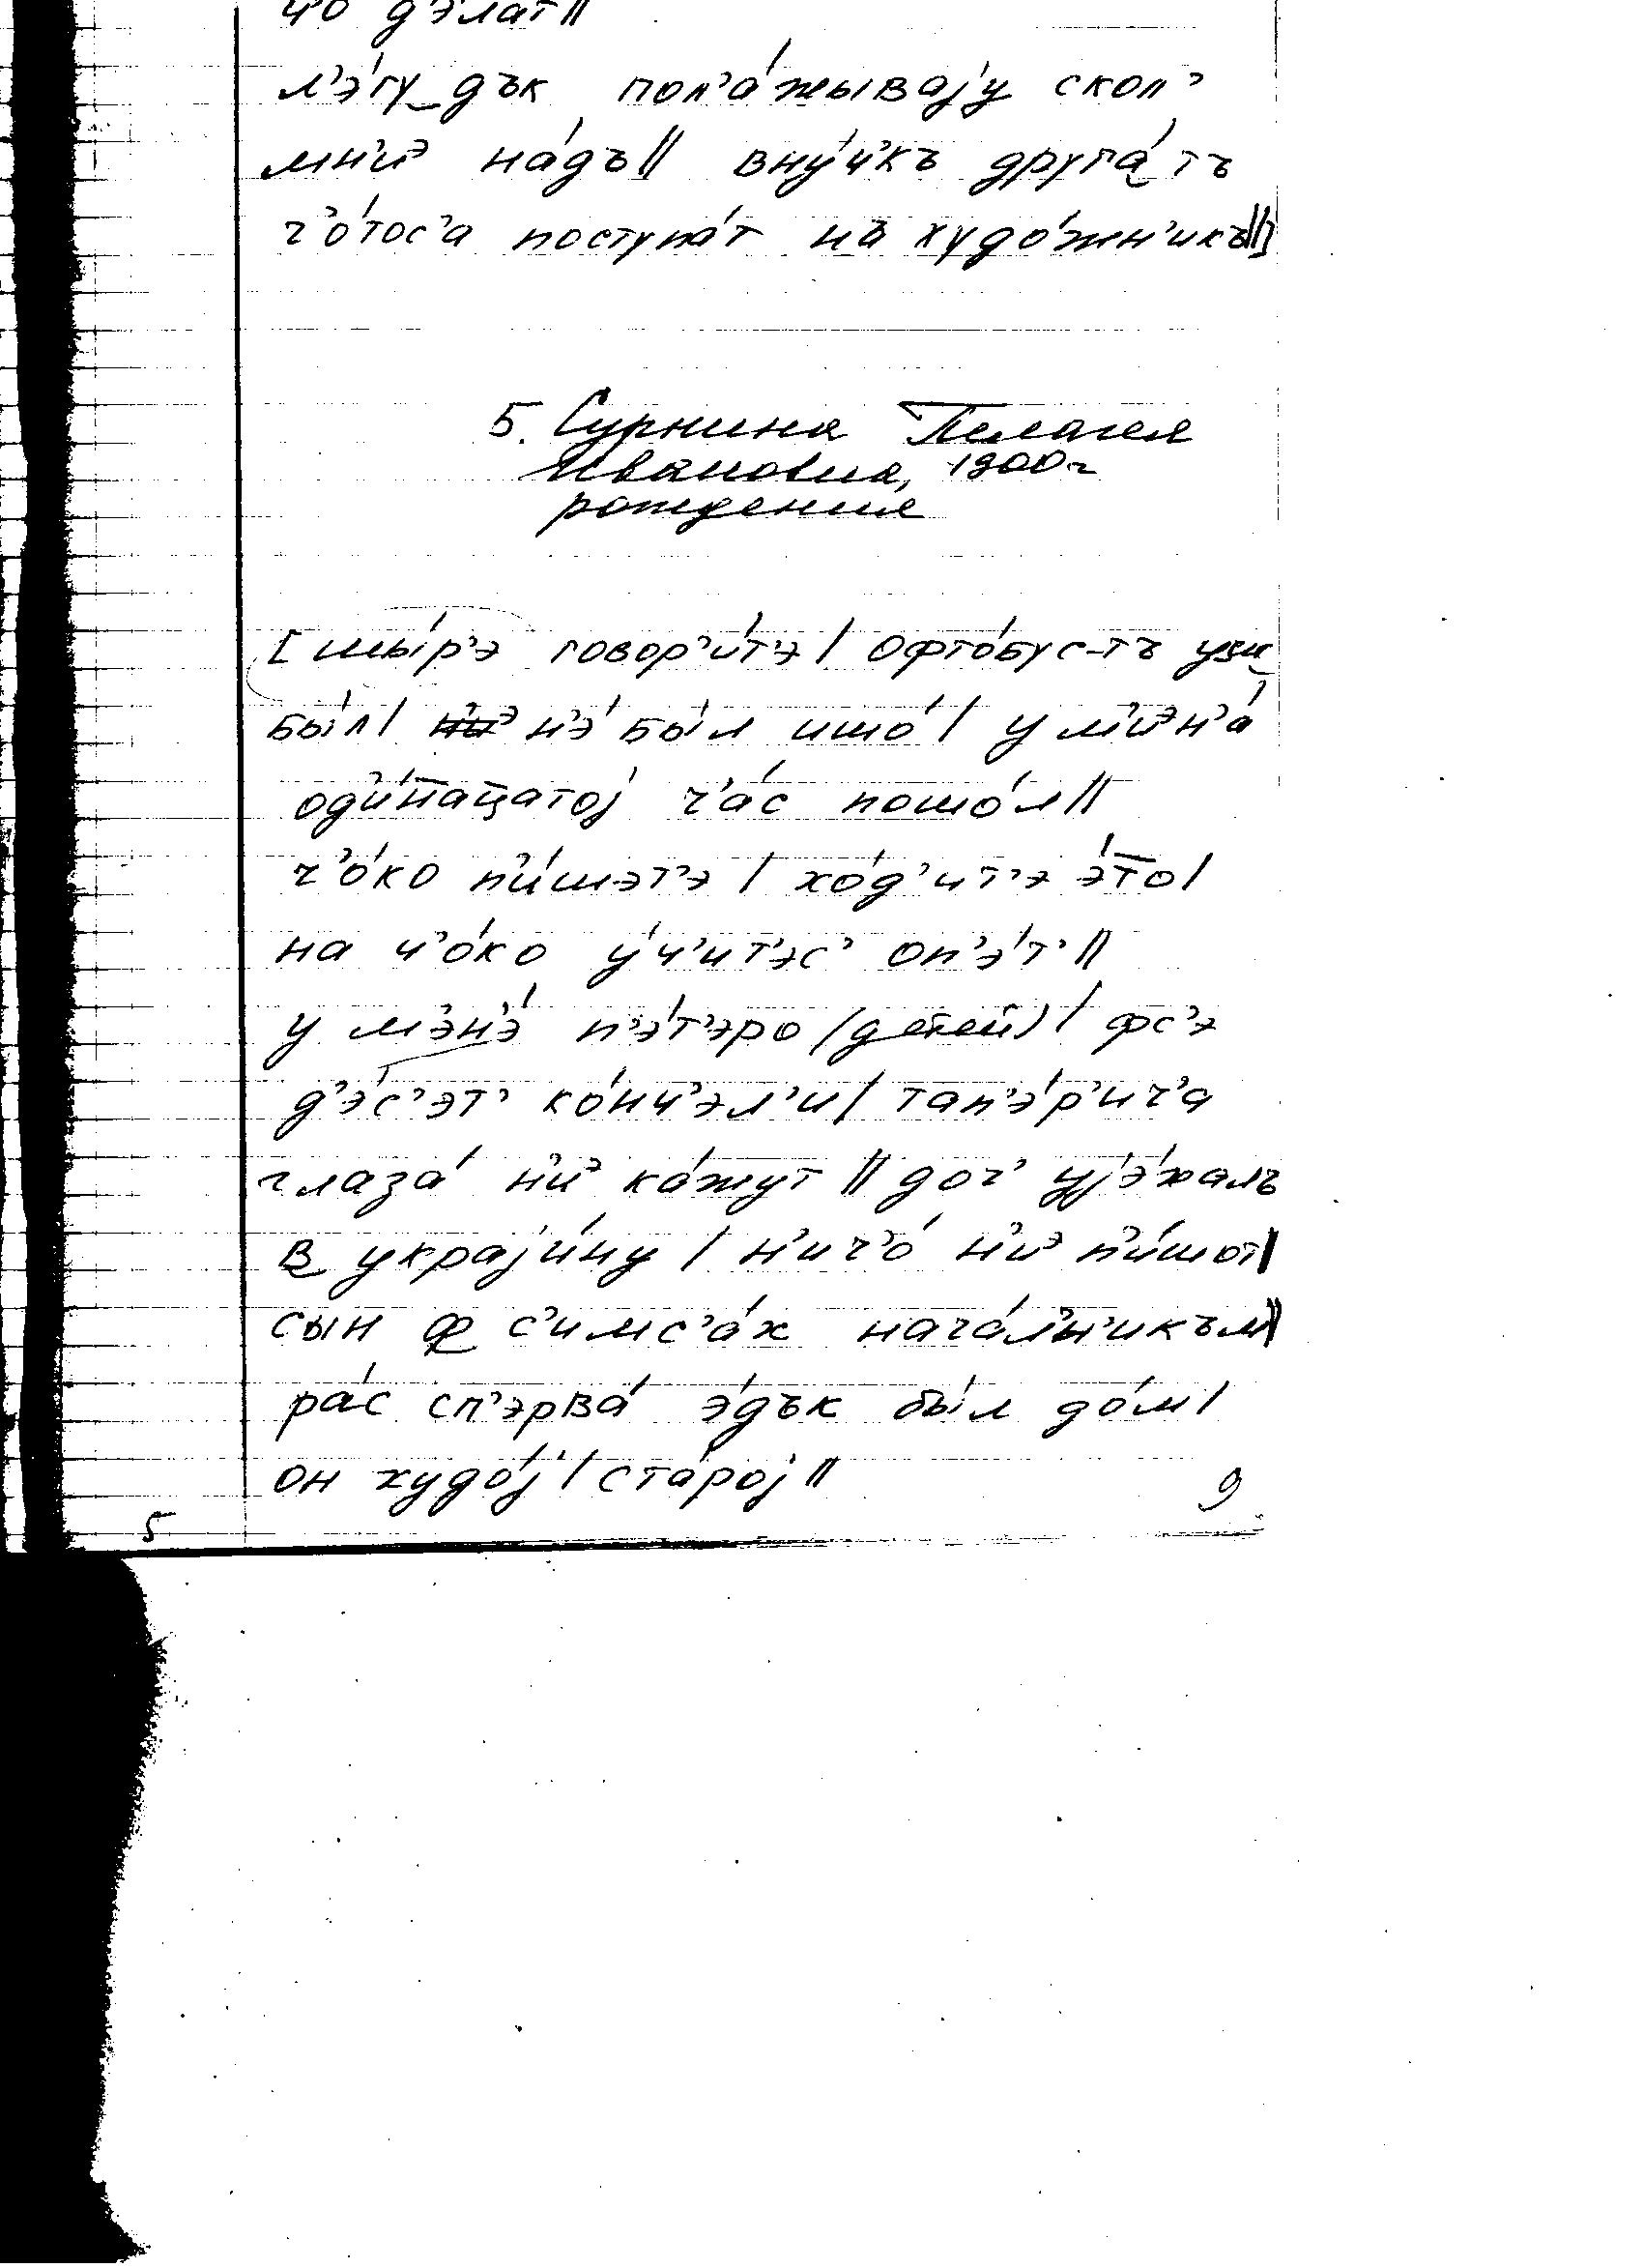 ч'о д'э́лат ||
л'э́гу дък пол'а́жывају скол'
мн'иэ на́дъ || вну́ч'къ друга́ тъ
ч'о́тос'а поступа́т на худо́жн'икъ ||]
5. Сурнина Пелагея
Ивановна, 1900 г
рождения
[шы́р'э говор'и́т'э | офто́бус-тъ
был | н'э́ бы́л ишо́ | у м'иэн'а́
од'и́нацатој ч'ас пошо́л ||
ч'о́ко п'и́шэт'э | хо́д'ит'э э́то |
на ч'о́ко у́ч'ит'эс' оп'э́т' ||
у м'эн'э́ п'э́т'эро (детей) | фс'э
д'э́с'эт' ко́нч'эл'и | тап'э́р'ич'а
глаза́ н'иэ ка́жут || доч' ује́халъ
в украји́ну | н'ич'о́ н'иэ п'и́шот |
сын ф с'имс'а́х нача́л'н'икъм ||
ра́с сп'эрва́ э́дък бы́л до́м |
он худо́ј | ста́рој ||
9
5